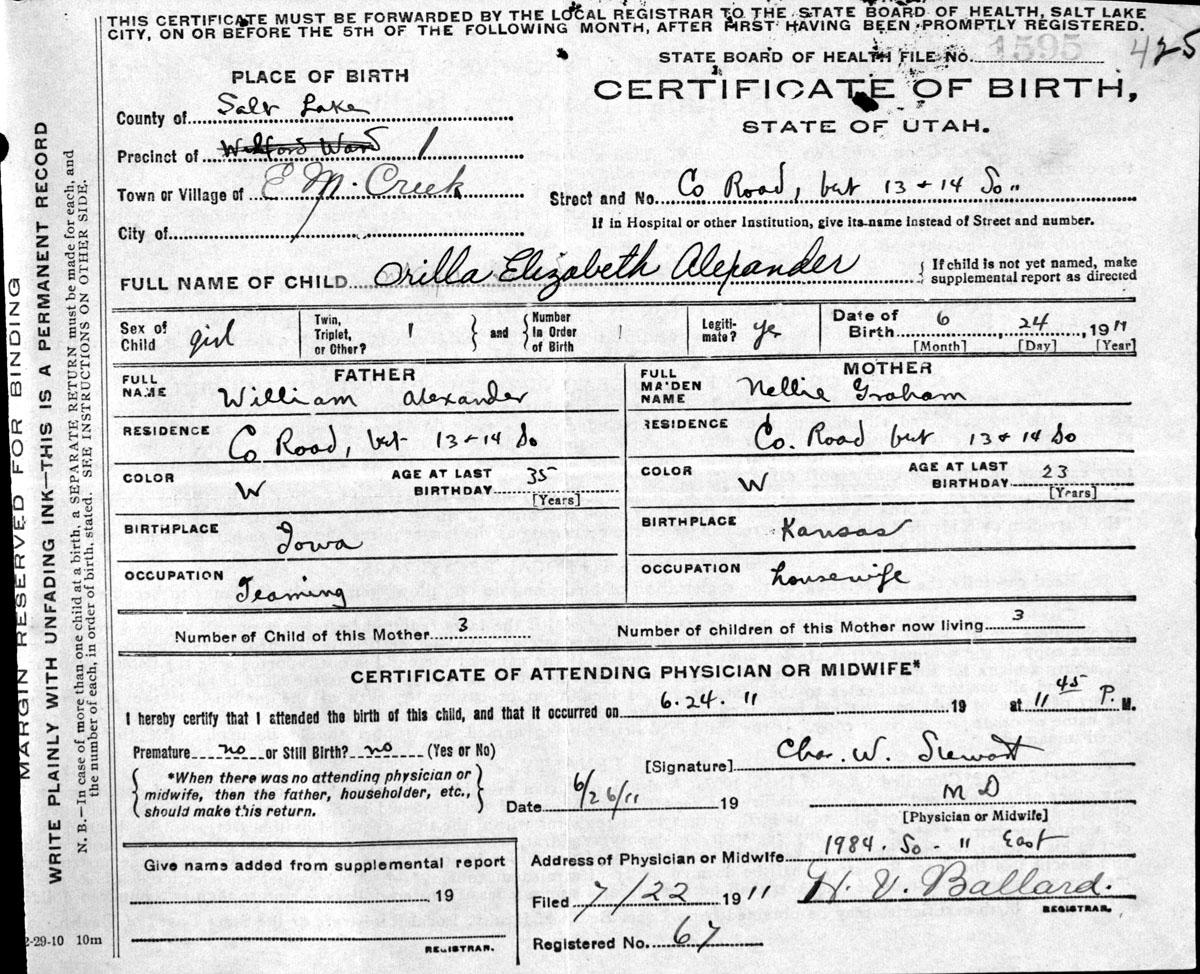 THIS CERTIFICATE MUST BE FORWARDED BY THE LOCAL REGISTRAR TO THE STATE BOARD OF HEALTH, SALT LAKE
CITY, ON OR BEFORE THE 5TH OF THE FOLLOWING MONTH, AFTER FIRST HAVING BEEN PROMPTLY REGISTERED.
STATE BOARD OF HEALTH FILE No. 1595 425
PLACE OF BIRTH
CERTIFICATE OF BIRTH,
STATE OF UTAH.
County of Salt Lake
Precinct of Wilford Ward 1
Town or Village of E M. Creek
Street and No. Co Road, bet 13 + 14 So "
City of
If in Hospital or other Institution, give its name instead of Street and number.
FULL NAME OF CHILD Orilla Elizabeth Alexander
If child is not yet named, make
supplemental report as directed
Sex of Child girl Twin, Triplet, or Other? 1 and Number In Order of Birth 1 Legiti-mate? yes Date of Birth 6 24, 1911
[Month] [Day] [Year]
FATHER MOTHER
FULL NAME William Alexander FULL MAIDEN NAME Nellie Graham
RESIDENCE Co Road, bet 13 + 14 So RESIDENCE Co. Road bet 13 + 14 So
COLOR W AGE AT LAST BIRTHDAY 35 [Years] COLOR W AGE AT LAST BIRTHDAY 23 [Years]
BIRTHPLACE Iowa BIRTHPLACE Kansas
OCCUPATION Teaming OCCUPATION housewife
Number of Child of this Mother 3 Number of children of this Mother now living 3
CERTIFICATE OF ATTENDING PHYSICIAN OR MIDWIFE*
I hereby certify that I attended the birth of this child, and that it occurred on 6. 24. 11 19 at 11 45 P. M.
Premature no or Still Birth? no (Yes or No)
[Signature] Chas. W. Stewart
*When there was no attending physician or
midwife, then the father, householder, etc.,
should make this return.
Date 6/26/11 19 M D
[Physician or Midwife]
Give name added from supplemental report
19
REGISTRAR.
Address of Physician or Midwife 1984. So. 11 East
Filed 7/22 1911 H. V. Ballard.
REGISTRAR.
Registered No. 67
2-29-10 10m
MARGIN RESERVED FOR BINDING
WRITE PLAINLY WITH UNFADING INK—THIS IS A PERMANENT RECORD
N. B.—In case of more than one child at a birth, a SEPARATE RETURN must be made for each, and
the number of each, in order of birth, stated. SEE INSTRUCTIONS ON OTHER SIDE.